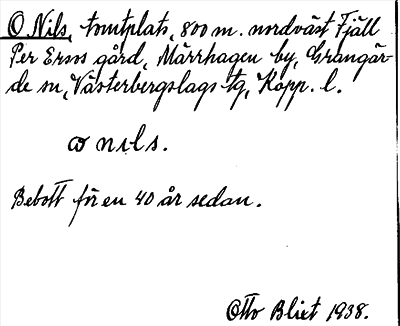 O Nils, tomtplats, 800 m. nordväst Fjäll
Per Ersos gård, Märrhagen by, Grangär-
de sn, Västerbergslags tg, Kopp. l.
ω nıls.
Bebott för en 40 år sedan.
Otto Blixt 1938.